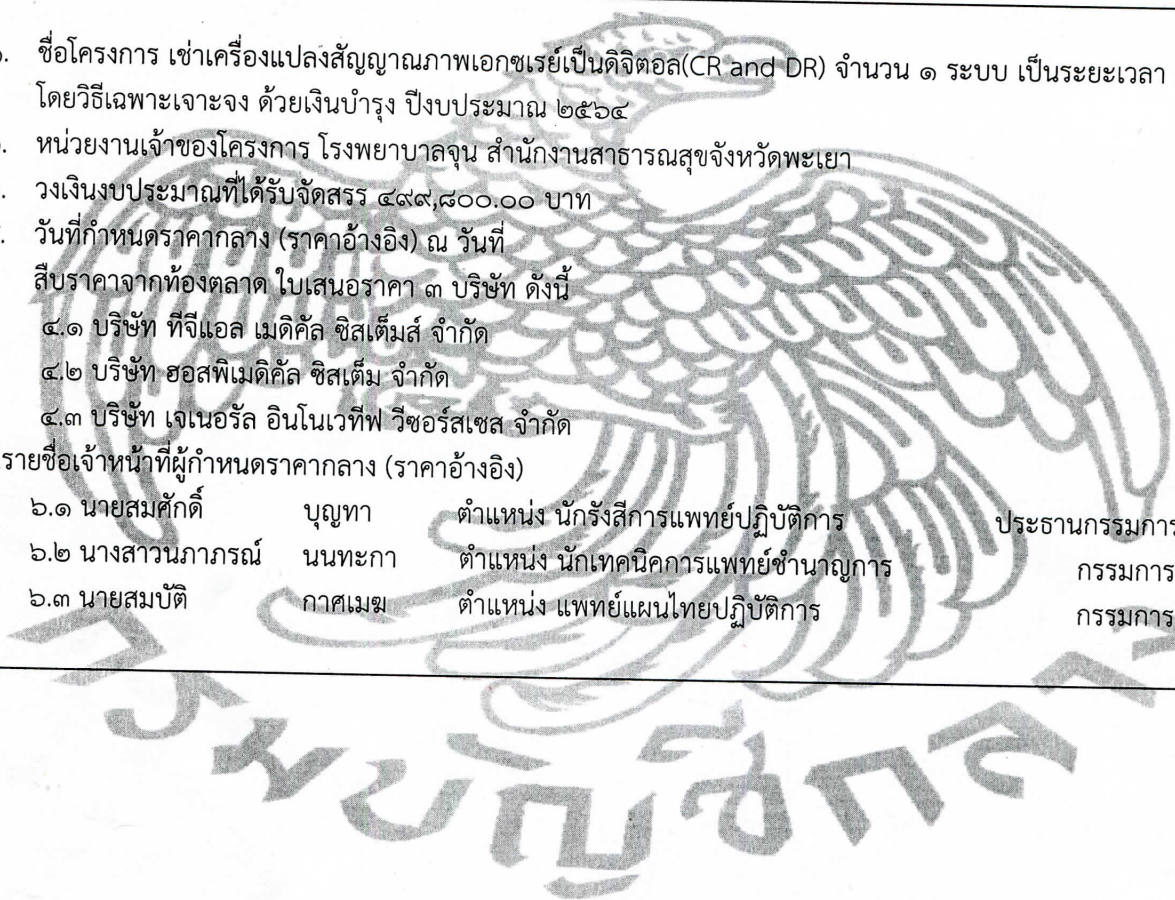 ชื่อโครงการ เช่าเครื่องแปลงสัญญาณภาพเอกซเรย์เป็นดิจิตอล(CR and DR) จำนวน ๑ ระบบ เป็นระยะเวลา
โดยวิธีเฉพาะเจาะจง ด้วยเงินบำรุง ปีงบประมาณ ๒๕๖๔
หน่วยงานเจ้าของโครงการ โรงพยาบาลจุน สำนักงานสาธารณสุขจังหวัดพะเยา
วงเงินงบประมาณที่ได้รับจัดสรร ๔๙๙,๘๐๐.๐๐ บาท
วันที่กำหนดราคากลาง (ราคาอ้างอิง) ณ วันที่
สืบราคาจากท้องตลาด ใบเสนอราคา ๓ บริษัท ดังนี้
๔.๑ บริษัท ทีจีแอล เมดิคัล ซิสเต็มส์ จำกัด
๔.๒ บริษัท ฮอสพิเมดิคัล ซิสเต็ม จำกัด
๔.๓ บริษัท เจเนอรัล อินโนเวทีฟ รีซอร์สเซส จำกัด
รายชื่อเจ้าหน้าที่ผู้กำหนดราคากลาง (ราคาอ้างอิง)
๖.๑ นายสมศักดิ์ บุญทา ตำแหน่ง นักรังสีการแพทย์ปฏิบัติการ ประธานกรรมการ
๖.๒ นางสาวนภาภรณ์ นนทะกา ตำแหน่ง นักเทคนิคการแพทย์ชำนาญการ กรรมการ
๖.๓ นายสมบัติ กาศเมฆ ตำแหน่ง แพทย์แผนไทยปฏิบัติการ กรรมการ
กรมบัญชีกลาง